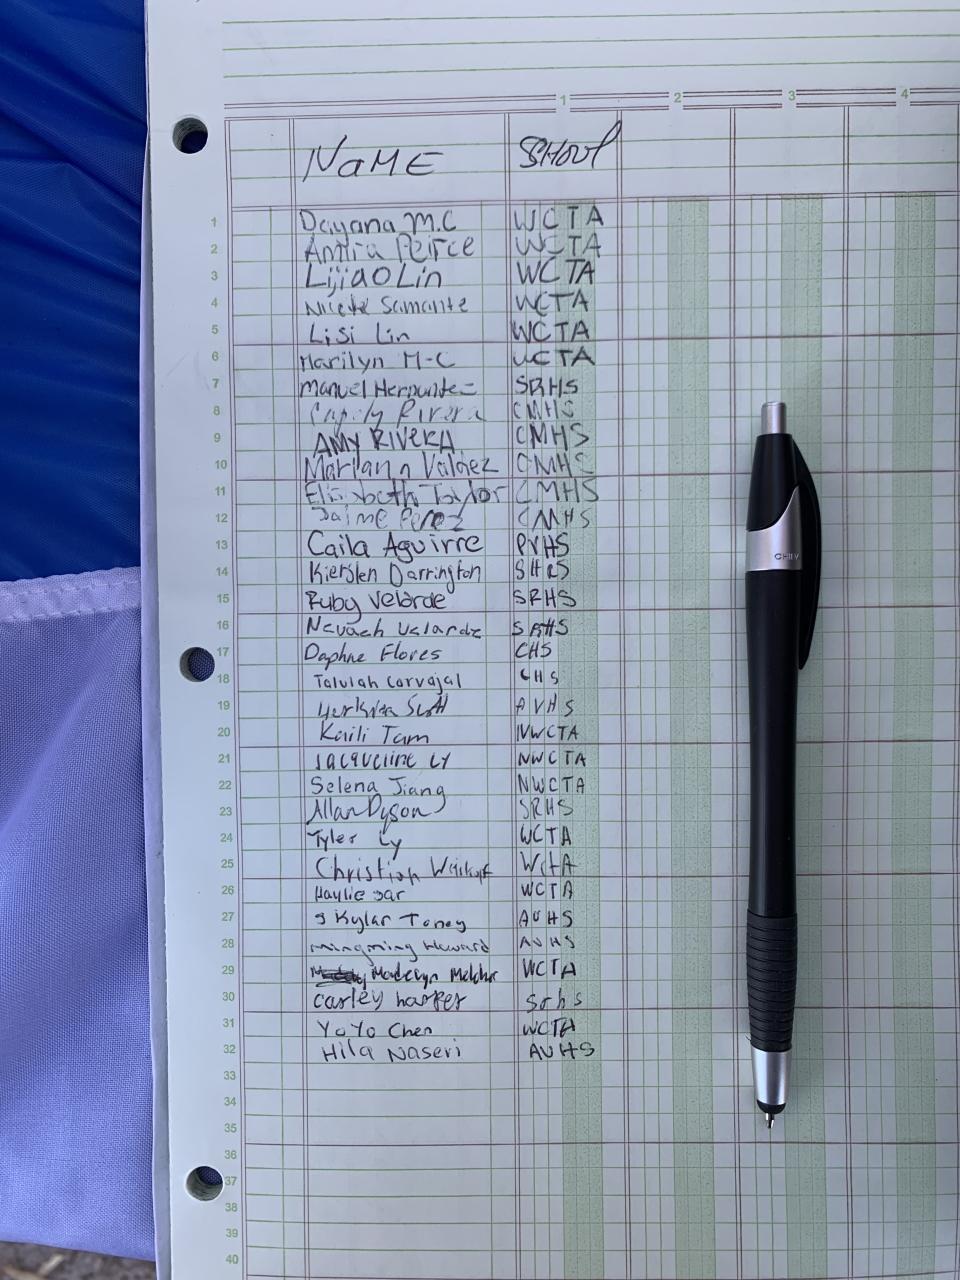 1 2 3 4
NaME SCHOOL
1 Dayana M.C WCTA
2 Amira Peirce WCTA
3 Lijiao Lin WCTA
4 Nicole WCTA
5 Lisi Lin WCTA
6 Marilyn M-C WCTA
7 Manuel Hernandez SRHS
8 Rivera CMHS
9 AMY RIVERA CMHS
10 Mariann Valdez CMHS
11 Elizabeth Taylor CMHS
12 Jaime Perez CMHS
13 Caila Aguirre PVHS
14 Kiersten Darrington SHRS
15 Ruby Velarde SRHS
16 Nevaeh Velarde SRHS
17 Daphne Flores CHS
18 Talulah Carvajal CHS
19 Scott AVHS
20 Kaili Tam NWCTA
21 Jacqueline Ly NWCTA
22 Selena Jiang NWCTA
23 Allan Dyson SRHS
24 Tyler Ly WCTA
25 Christian WctA
26 Haylie WCTA
27 Skylar Toney AVHS
28 Mingming Howard AVHS
29 Madelyn Melcher WCTA
30 Carley harper Srhs
31 YoYo Chen WCTA
32 Hila Naseri AVHS
33
34
35
36
37
38
39
40